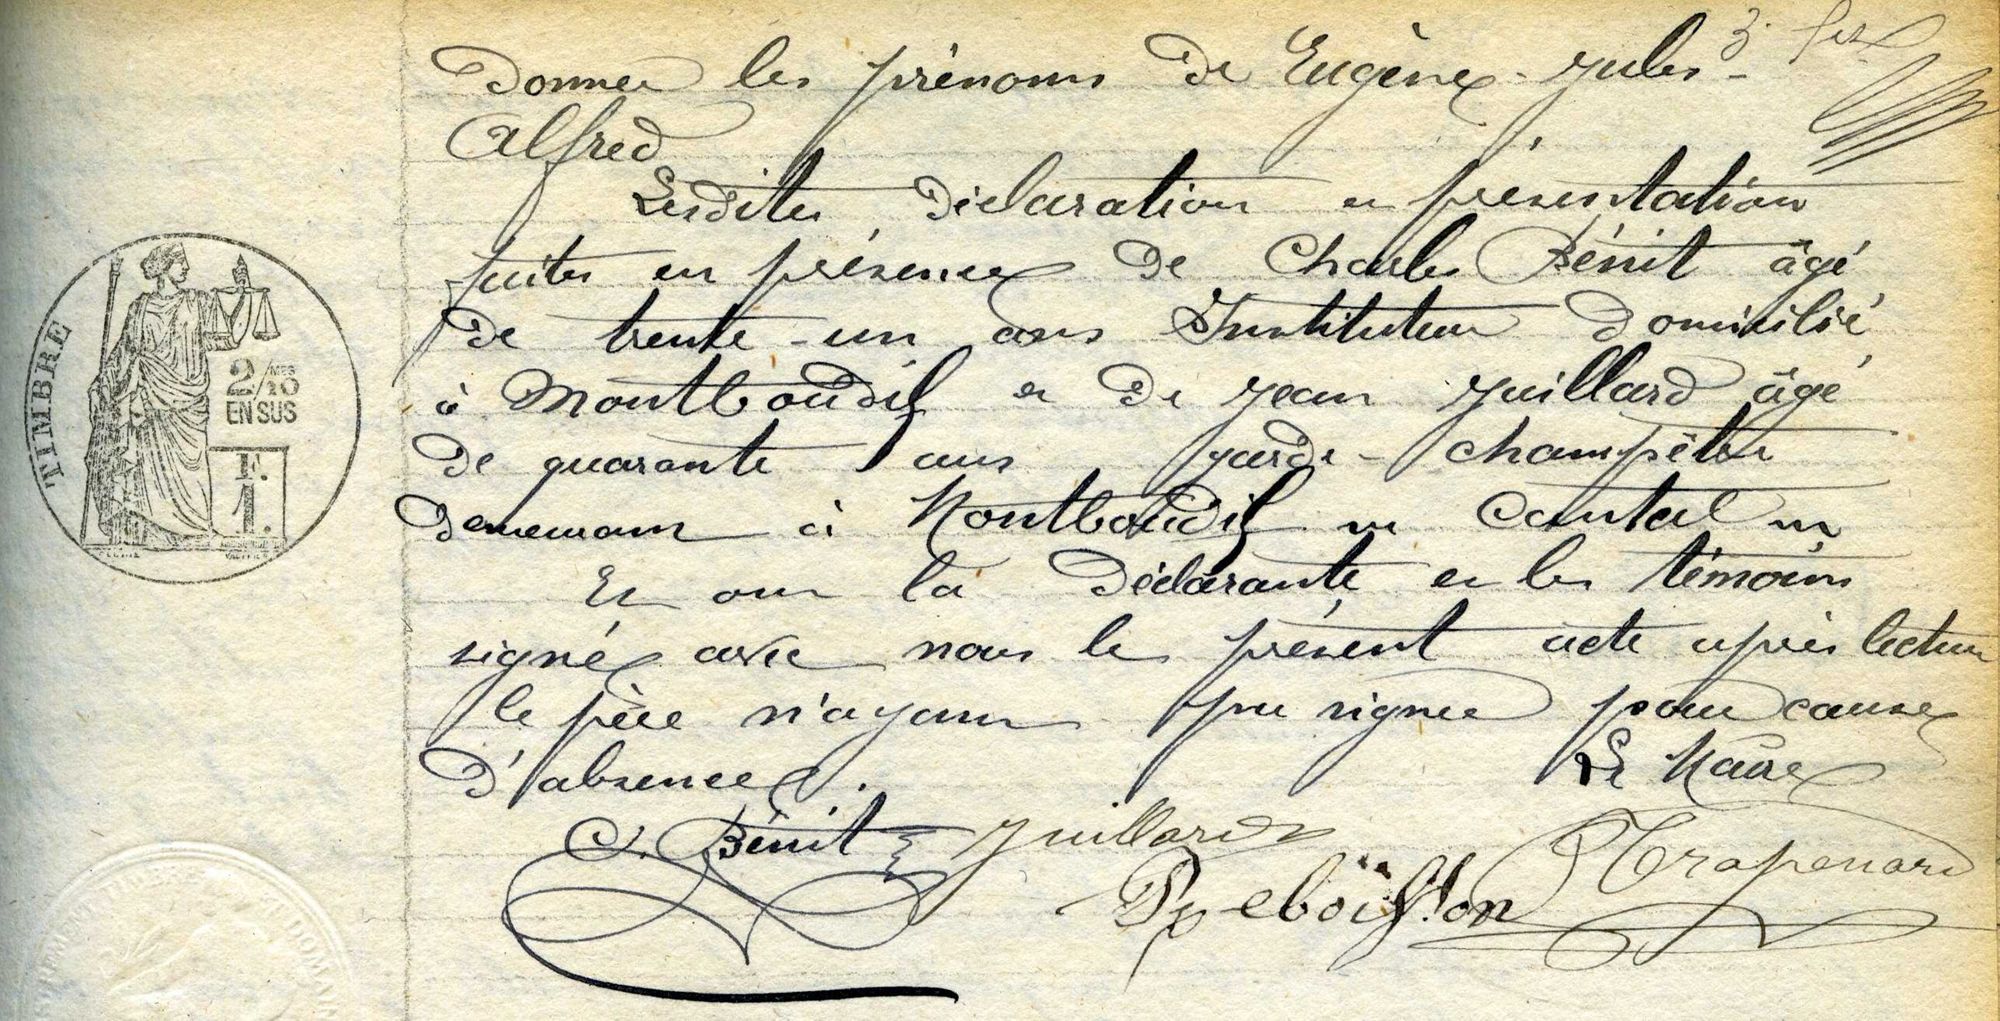 3.
donner les prénoms de Eugène-Jules-
Alfred
Lesdites déclaration et présentation
faites en présence de Charles Bénit âgé
de trente-un ans Instituteur domicilié
à Montboudif et de Jean Juillard âgé
de quarante ans garde-champêtre
demeurant à Montboudif Cantal
Et ont la déclarante et les témoins
signé avec nous le présent acte après lecture
le père n'ayant pu signer pour cause
d'absence.
Le Maire
C. Bénit Juillard
Trapenard
TIMBRE
2/10 MES
EN SUS
F.
1.